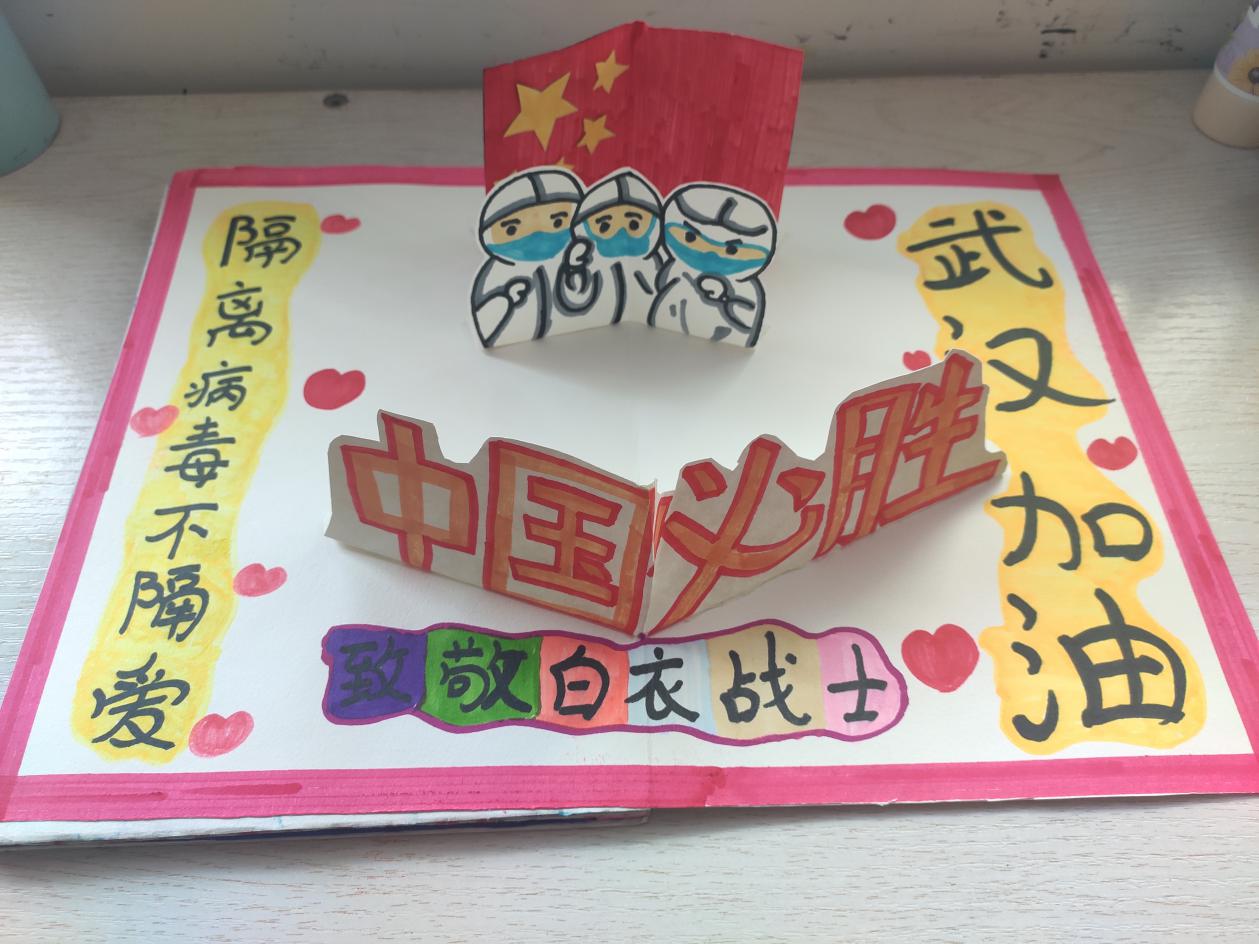 隔离病毒不隔爱
武汉加油
中国必胜
致敬白衣战士